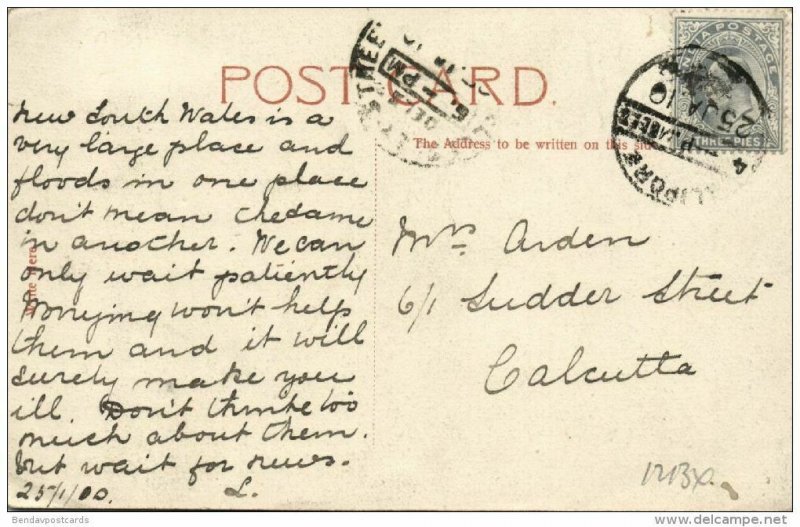 POST CARD.
The Address to be written on this side
Write Here
New South Wales is a
very large place and
floods in one place
don't mean the dame
in another. We can
only wait patiently
Worrying won't help
them and it will
surely make you
ill. Don't think too
much about them.
but wait for news.
25/1/00. L.
Mrs Arden
6/1 Sudder Street
Calcutta
A POSTAGE
THREE PIES
ALIPORE
25 JA 10
4
PM
121Bx
Bendavpostcards delcampe.net